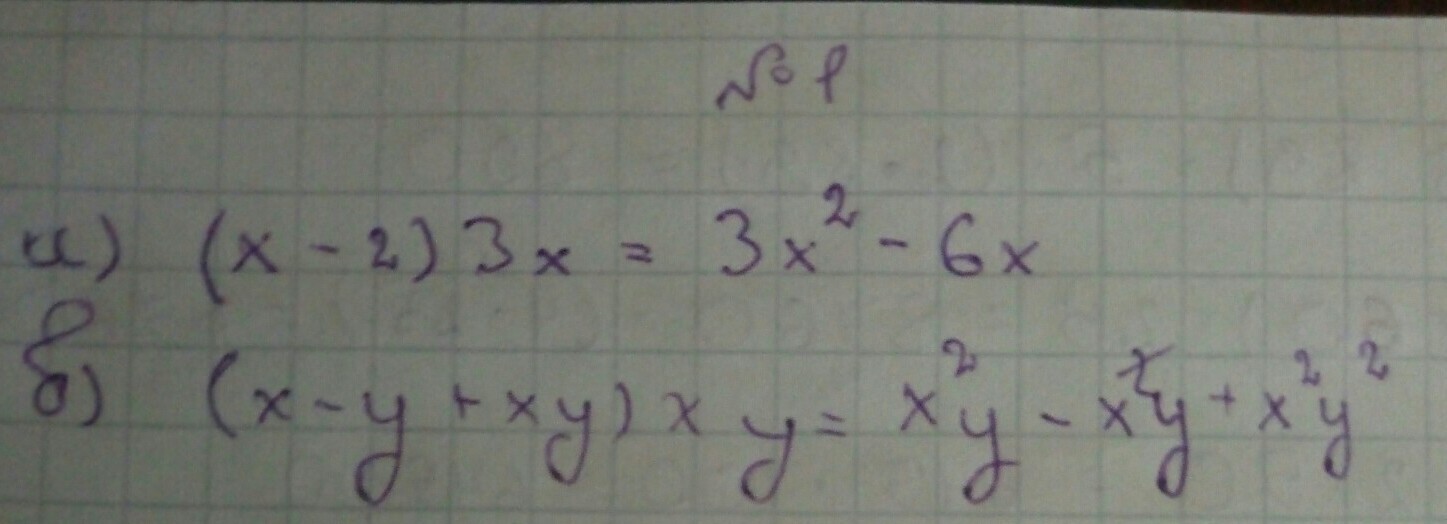 № 1
а) (x - 2) 3x = 3x² - 6x
б) (x - y + xy) x y = x²y - x²y + x²y²